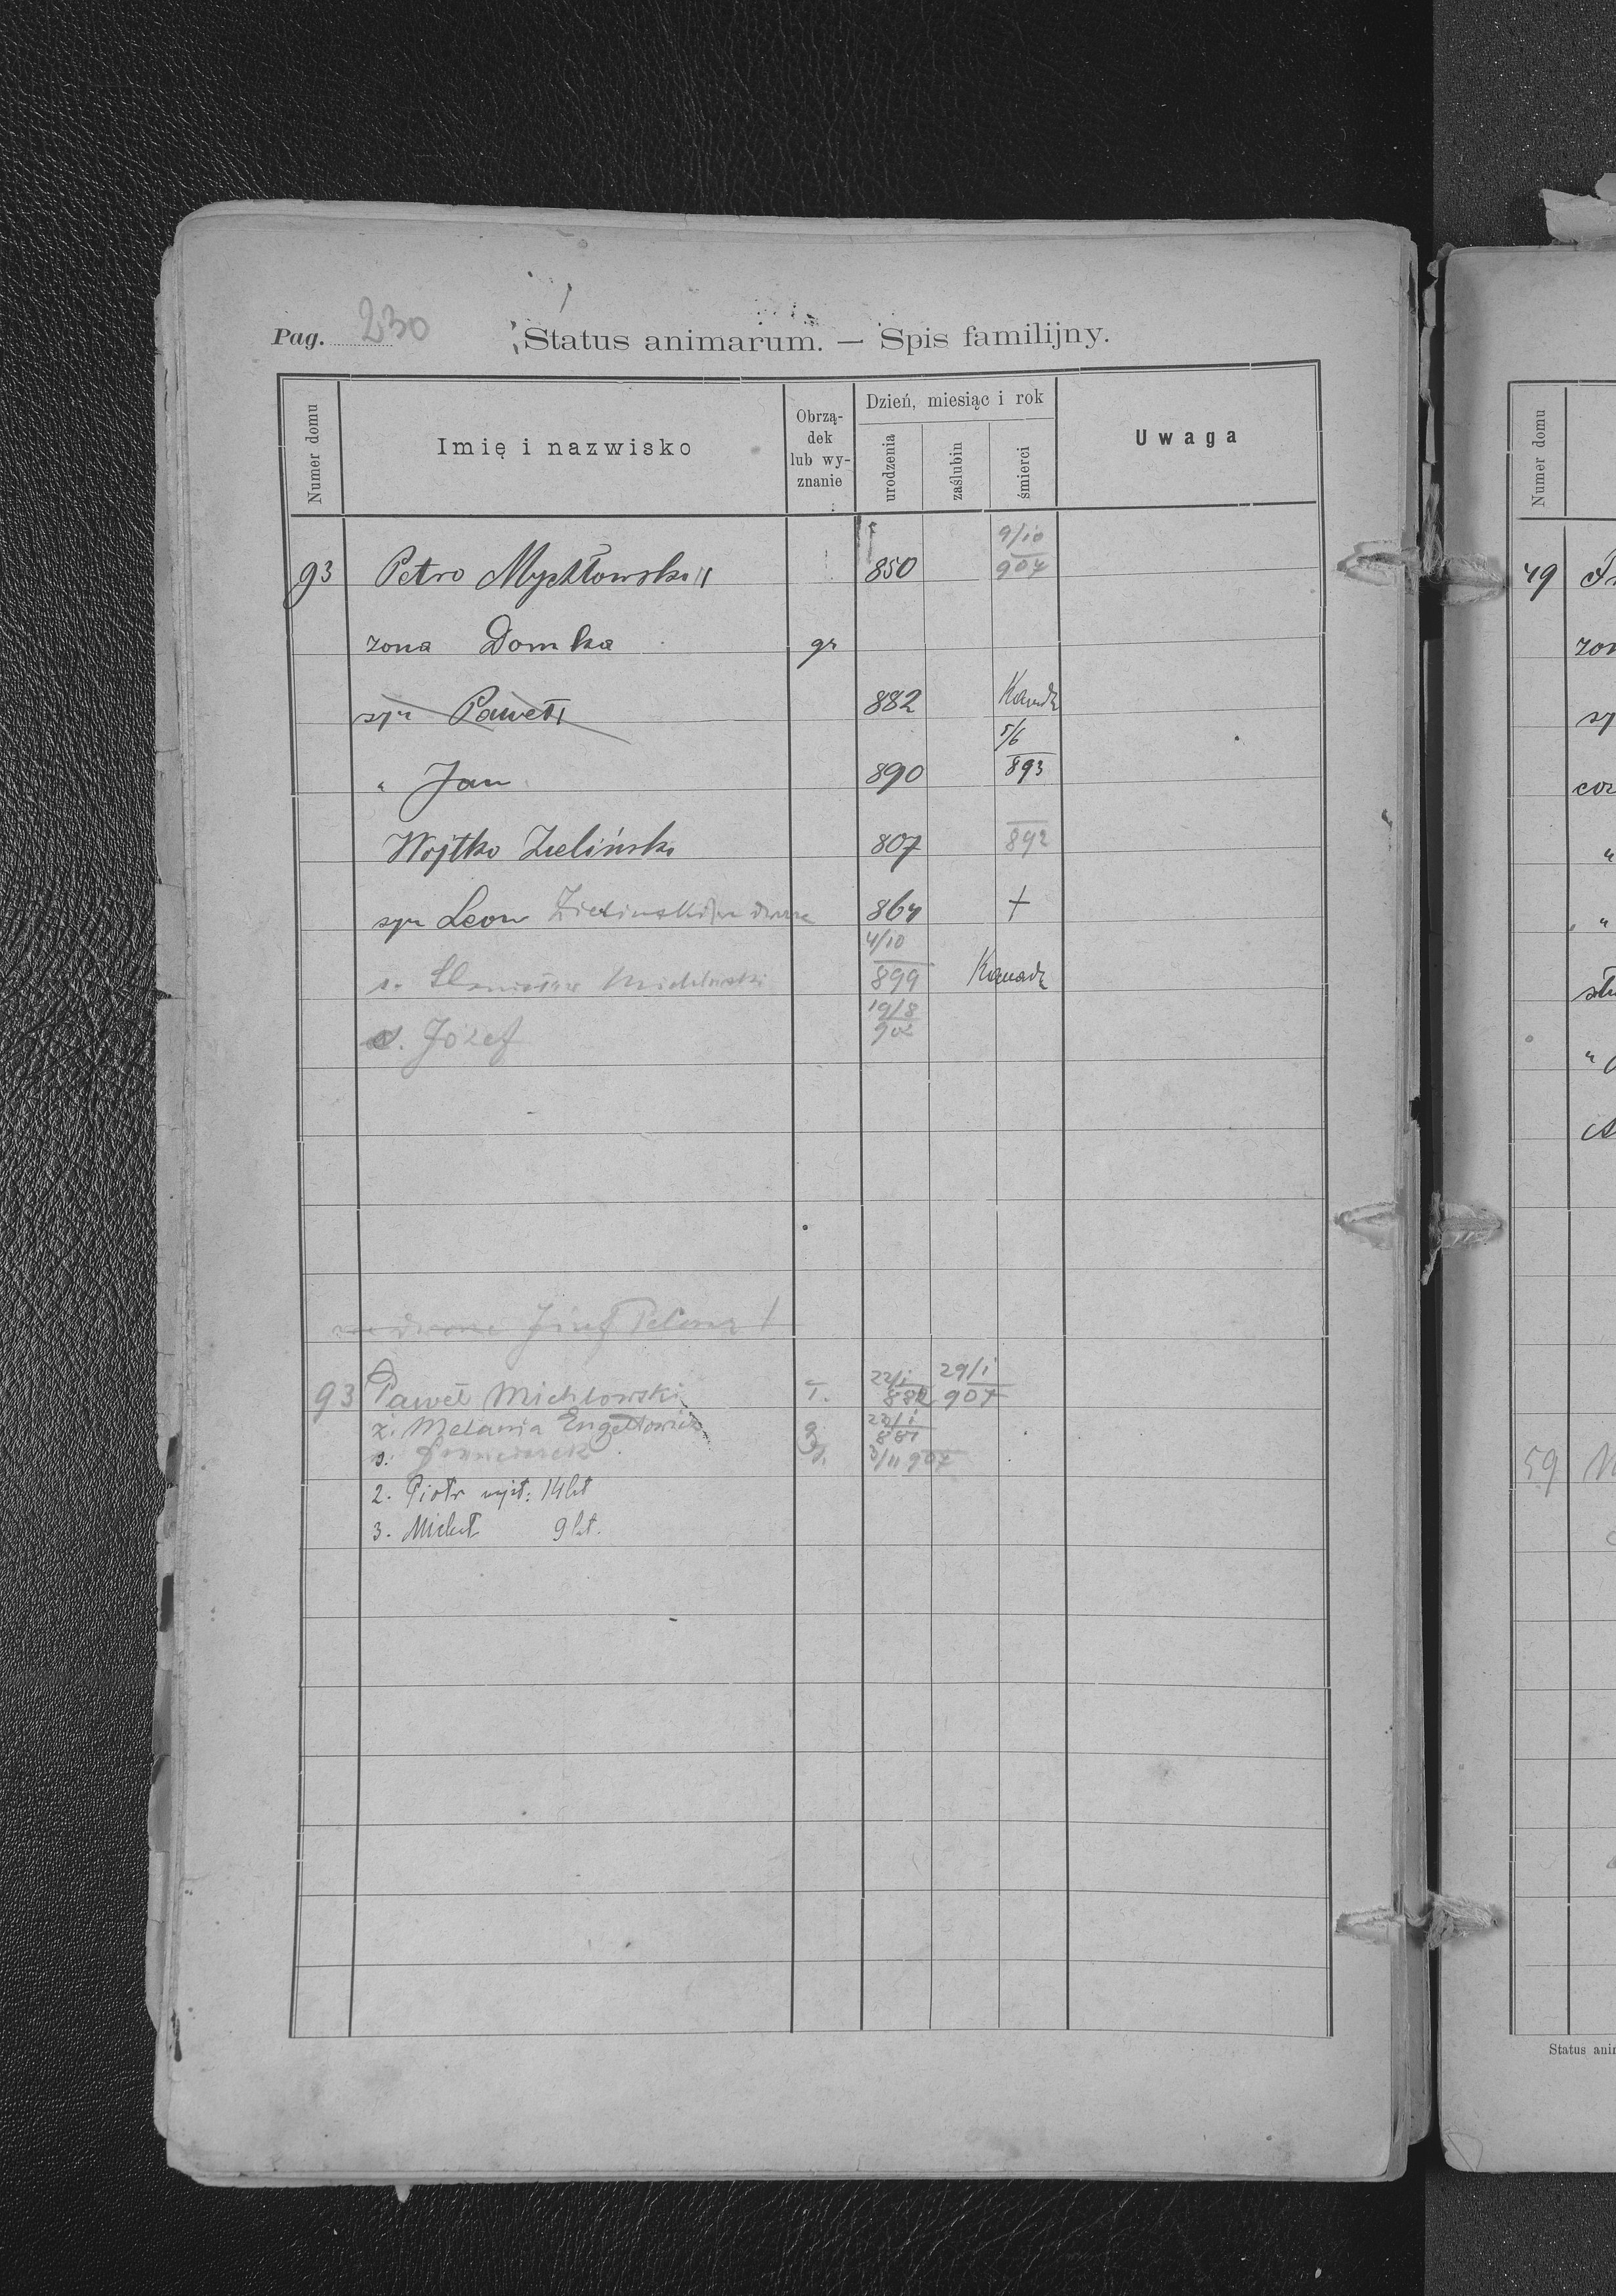 Pag. 230 Status animarum. — Spis familijny.
Numer domu Imię i nazwisko Obrzą- dek lub wy- znanie Dzień, miesiąc i rok Uwaga
urodzenia zaślubin śmierci
93 Petro Mychłowski 850 9/10 907
zona Domka gr
syn Paweł 882 Kanada
" Jan 890 5/6 893
Wojtko Zieliński 807 892
syn Leon Zielinski 864 +
4/10
s. Stanisław Michłowski 899 Kanada
s. Józef 19/8 902
Józef
93 Paweł Michłowski T. 22/i 882 29/i 907
ż. Melania
s. 3/11 907
2. Piotr 14 lat
3. Michał 9 lat.
Numer domu
49
zon
sy
cor
"
"
"
59
Status ani